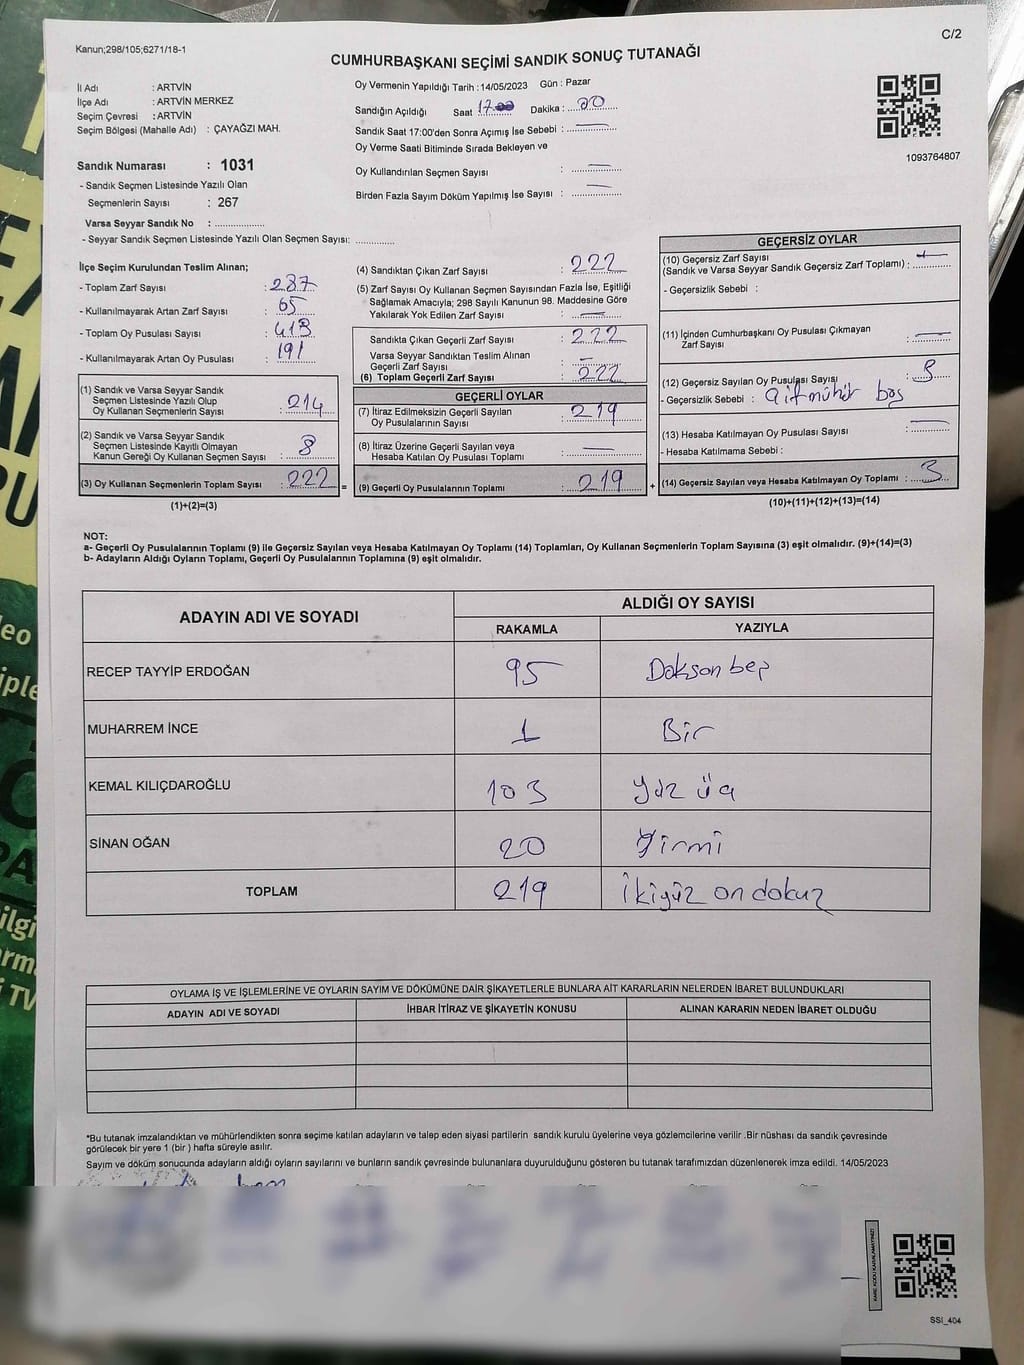 C/2
Kanun;298/105;6271/18-1
CUMHURBAŞKANI SEÇİMİ SANDIK SONUÇ TUTANAĞI
İl Adı : ARTVİN
İlçe Adı : ARTVİN MERKEZ
Seçim Çevresi : ARTVİN
Seçim Bölgesi (Mahalle Adı) : ÇAYAĞZI MAH.
Sandık Numarası : 1031
- Sandık Seçmen Listesinde Yazılı Olan
Seçmenlerin Sayısı : 267
Varsa Seyyar Sandık No : ..................
- Seyyar Sandık Seçmen Listesinde Yazılı Olan Seçmen Sayısı: ..............
Oy Vermenin Yapıldığı Tarih : 14/05/2023 Gün : Pazar
Sandığın Açıldığı Saat 17.00 Dakika : 00
Sandık Saat 17:00'den Sonra Açımış İse Sebebi : —
Oy Verme Saati Bitiminde Sırada Bekleyen ve
Oy Kullandırılan Seçmen Sayısı : —
Birden Fazla Sayım Döküm Yapılmış İse Sayısı : —
1093764807
İlçe Seçim Kurulundan Teslim Alınan;
- Toplam Zarf Sayısı : 287
- Kullanılmayarak Artan Zarf Sayısı : 65
- Toplam Oy Pusulası Sayısı : 413
- Kullanılmayarak Artan Oy Pusulası : 191
(1) Sandık ve Varsa Seyyar Sandık
Seçmen Listesinde Yazılı Olup
Oy Kullanan Seçmenlerin Sayısı : 214
(2) Sandık ve Varsa Seyyar Sandık
Seçmen Listesinde Kayıtlı Olmayan
Kanun Gereği Oy Kullanan Seçmen Sayısı : 8
(3) Oy Kullanan Seçmenlerin Toplam Sayısı : 222 =
(1)+(2)=(3)
(4) Sandıktan Çıkan Zarf Sayısı : 222
(5) Zarf Sayısı Oy Kullanan Seçmen Sayısından Fazla İse, Eşitliği
Sağlamak Amacıyla; 298 Sayılı Kanunun 98. Maddesine Göre
Yakılarak Yok Edilen Zarf Sayısı : —
Sandıkta Çıkan Geçerli Zarf Sayısı : 222
Varsa Seyyar Sandıktan Teslim Alınan
Geçerli Zarf Sayısı : —
(6) Toplam Geçerli Zarf Sayısı : 222
GEÇERLİ OYLAR
(7) İtiraz Edilmeksizin Geçerli Sayılan
Oy Pusulalarının Sayısı : 219
(8) İtiraz Üzerine Geçerli Sayılan veya
Hesaba Katılan Oy Pusulası Toplamı : —
(9) Geçerli Oy Pusulalarının Toplamı : 219 +
GEÇERSİZ OYLAR
(10) Geçersiz Zarf Sayısı
(Sandık ve Varsa Seyyar Sandık Geçersiz Zarf Toplamı) : —
- Geçersizlik Sebebi :
(11) İçinden Cumhurbaşkanı Oy Pusulası Çıkmayan
Zarf Sayısı : —
(12) Geçersiz Sayılan Oy Pusulası Sayısı : 3
- Geçersizlik Sebebi : Çift mühür boş
(13) Hesaba Katılmayan Oy Pusulası Sayısı : —
- Hesaba Katılmama Sebebi :
(14) Geçersiz Sayılan veya Hesaba Katılmayan Oy Toplamı : 3
(10)+(11)+(12)+(13)=(14)
NOT:
a- Geçerli Oy Pusulalarının Toplamı (9) ile Geçersiz Sayılan veya Hesaba Katılmayan Oy Toplamı (14) Toplamları, Oy Kullanan Seçmenlerin Toplam Sayısına (3) eşit olmalıdır. (9)+(14)=(3)
b- Adayların Aldığı Oyların Toplamı, Geçerli Oy Pusulalarının Toplamına (9) eşit olmalıdır.
ADAYIN ADI VE SOYADI ALDIĞI OY SAYISI
RAKAMLA YAZIYLA
RECEP TAYYİP ERDOĞAN 95 Doksan beş
MUHARREM İNCE 1 Bir
KEMAL KILIÇDAROĞLU 103 Yüz üç
SİNAN OĞAN 20 Yirmi
TOPLAM 219 İkiyüz on dokuz
OYLAMA İŞ VE İŞLEMLERİNE VE OYLARIN SAYIM VE DÖKÜMÜNE DAİR ŞİKAYETLERLE BUNLARA AİT KARARLARIN NELERDEN İBARET BULUNDUKLARI
ADAYIN ADI VE SOYADI İHBAR İTİRAZ VE ŞİKAYETİN KONUSU ALINAN KARARIN NEDEN İBARET OLDUĞU
*Bu tutanak imzalandıktan ve mühürlendikten sonra seçime katılan adayların ve talep eden siyasi partilerin sandık kurulu üyelerine veya gözlemcilerine verilir .Bir nüshası da sandık çevresinde
görülecek bir yere 1 (bir ) hafta süreyle asılır.
Sayım ve döküm sonucunda adayların aldığı oyların sayılarını ve bunların sandık çevresinde bulunanlara duyurulduğunu gösteren bu tutanak tarafımızdan düzenlenerek imza edildi. 14/05/2023
KARE KODU KARALAMAYINIZ!
SSI_404